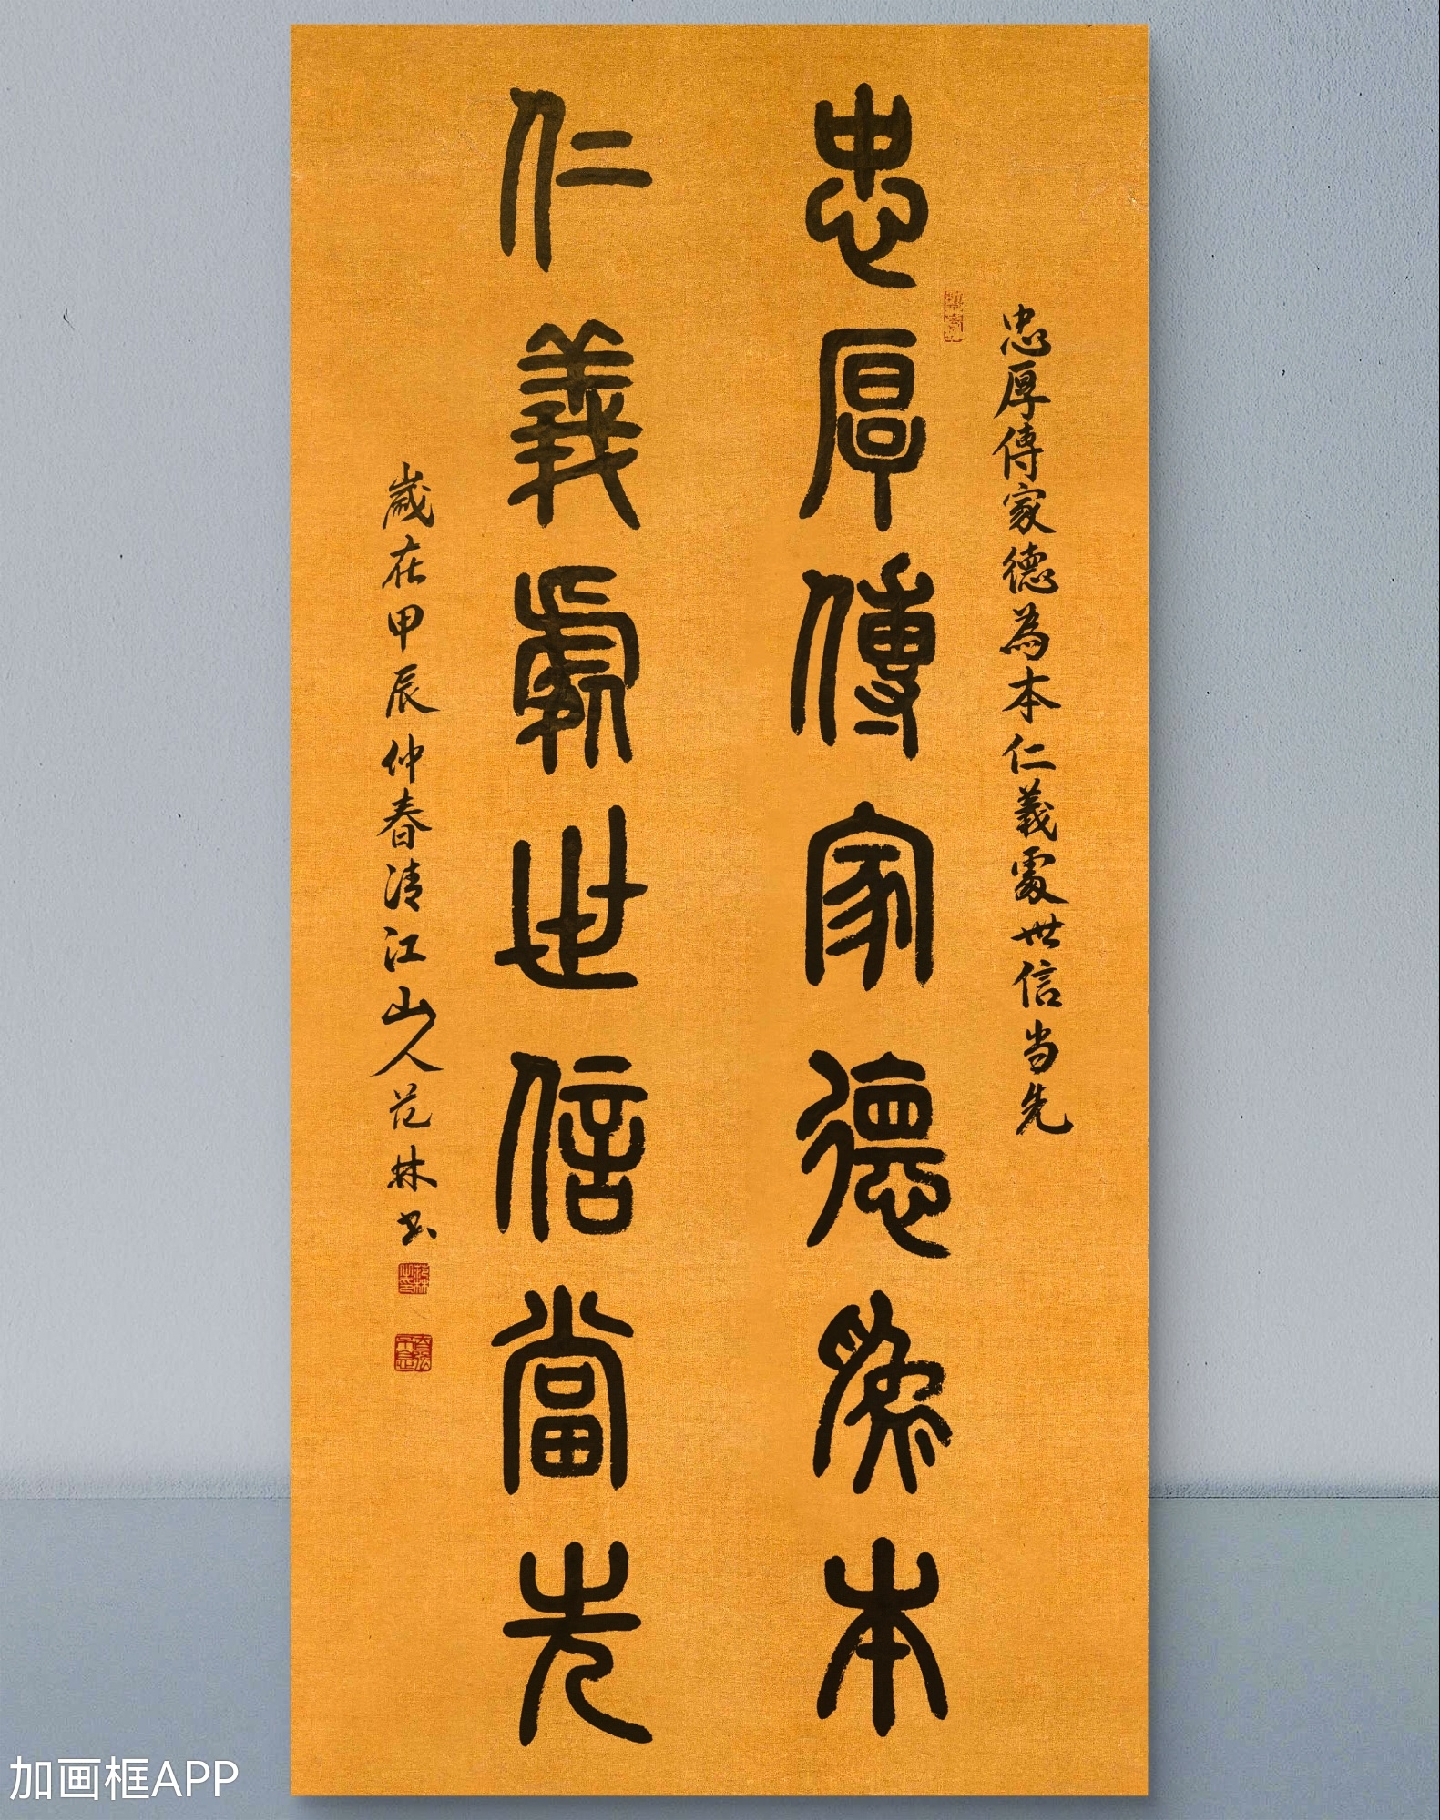 忠厚傳家德為本仁義處世信当先
忠厚傳家德為本
仁義處世信當先
歲在甲辰仲春清江山人范林书
加画框APP